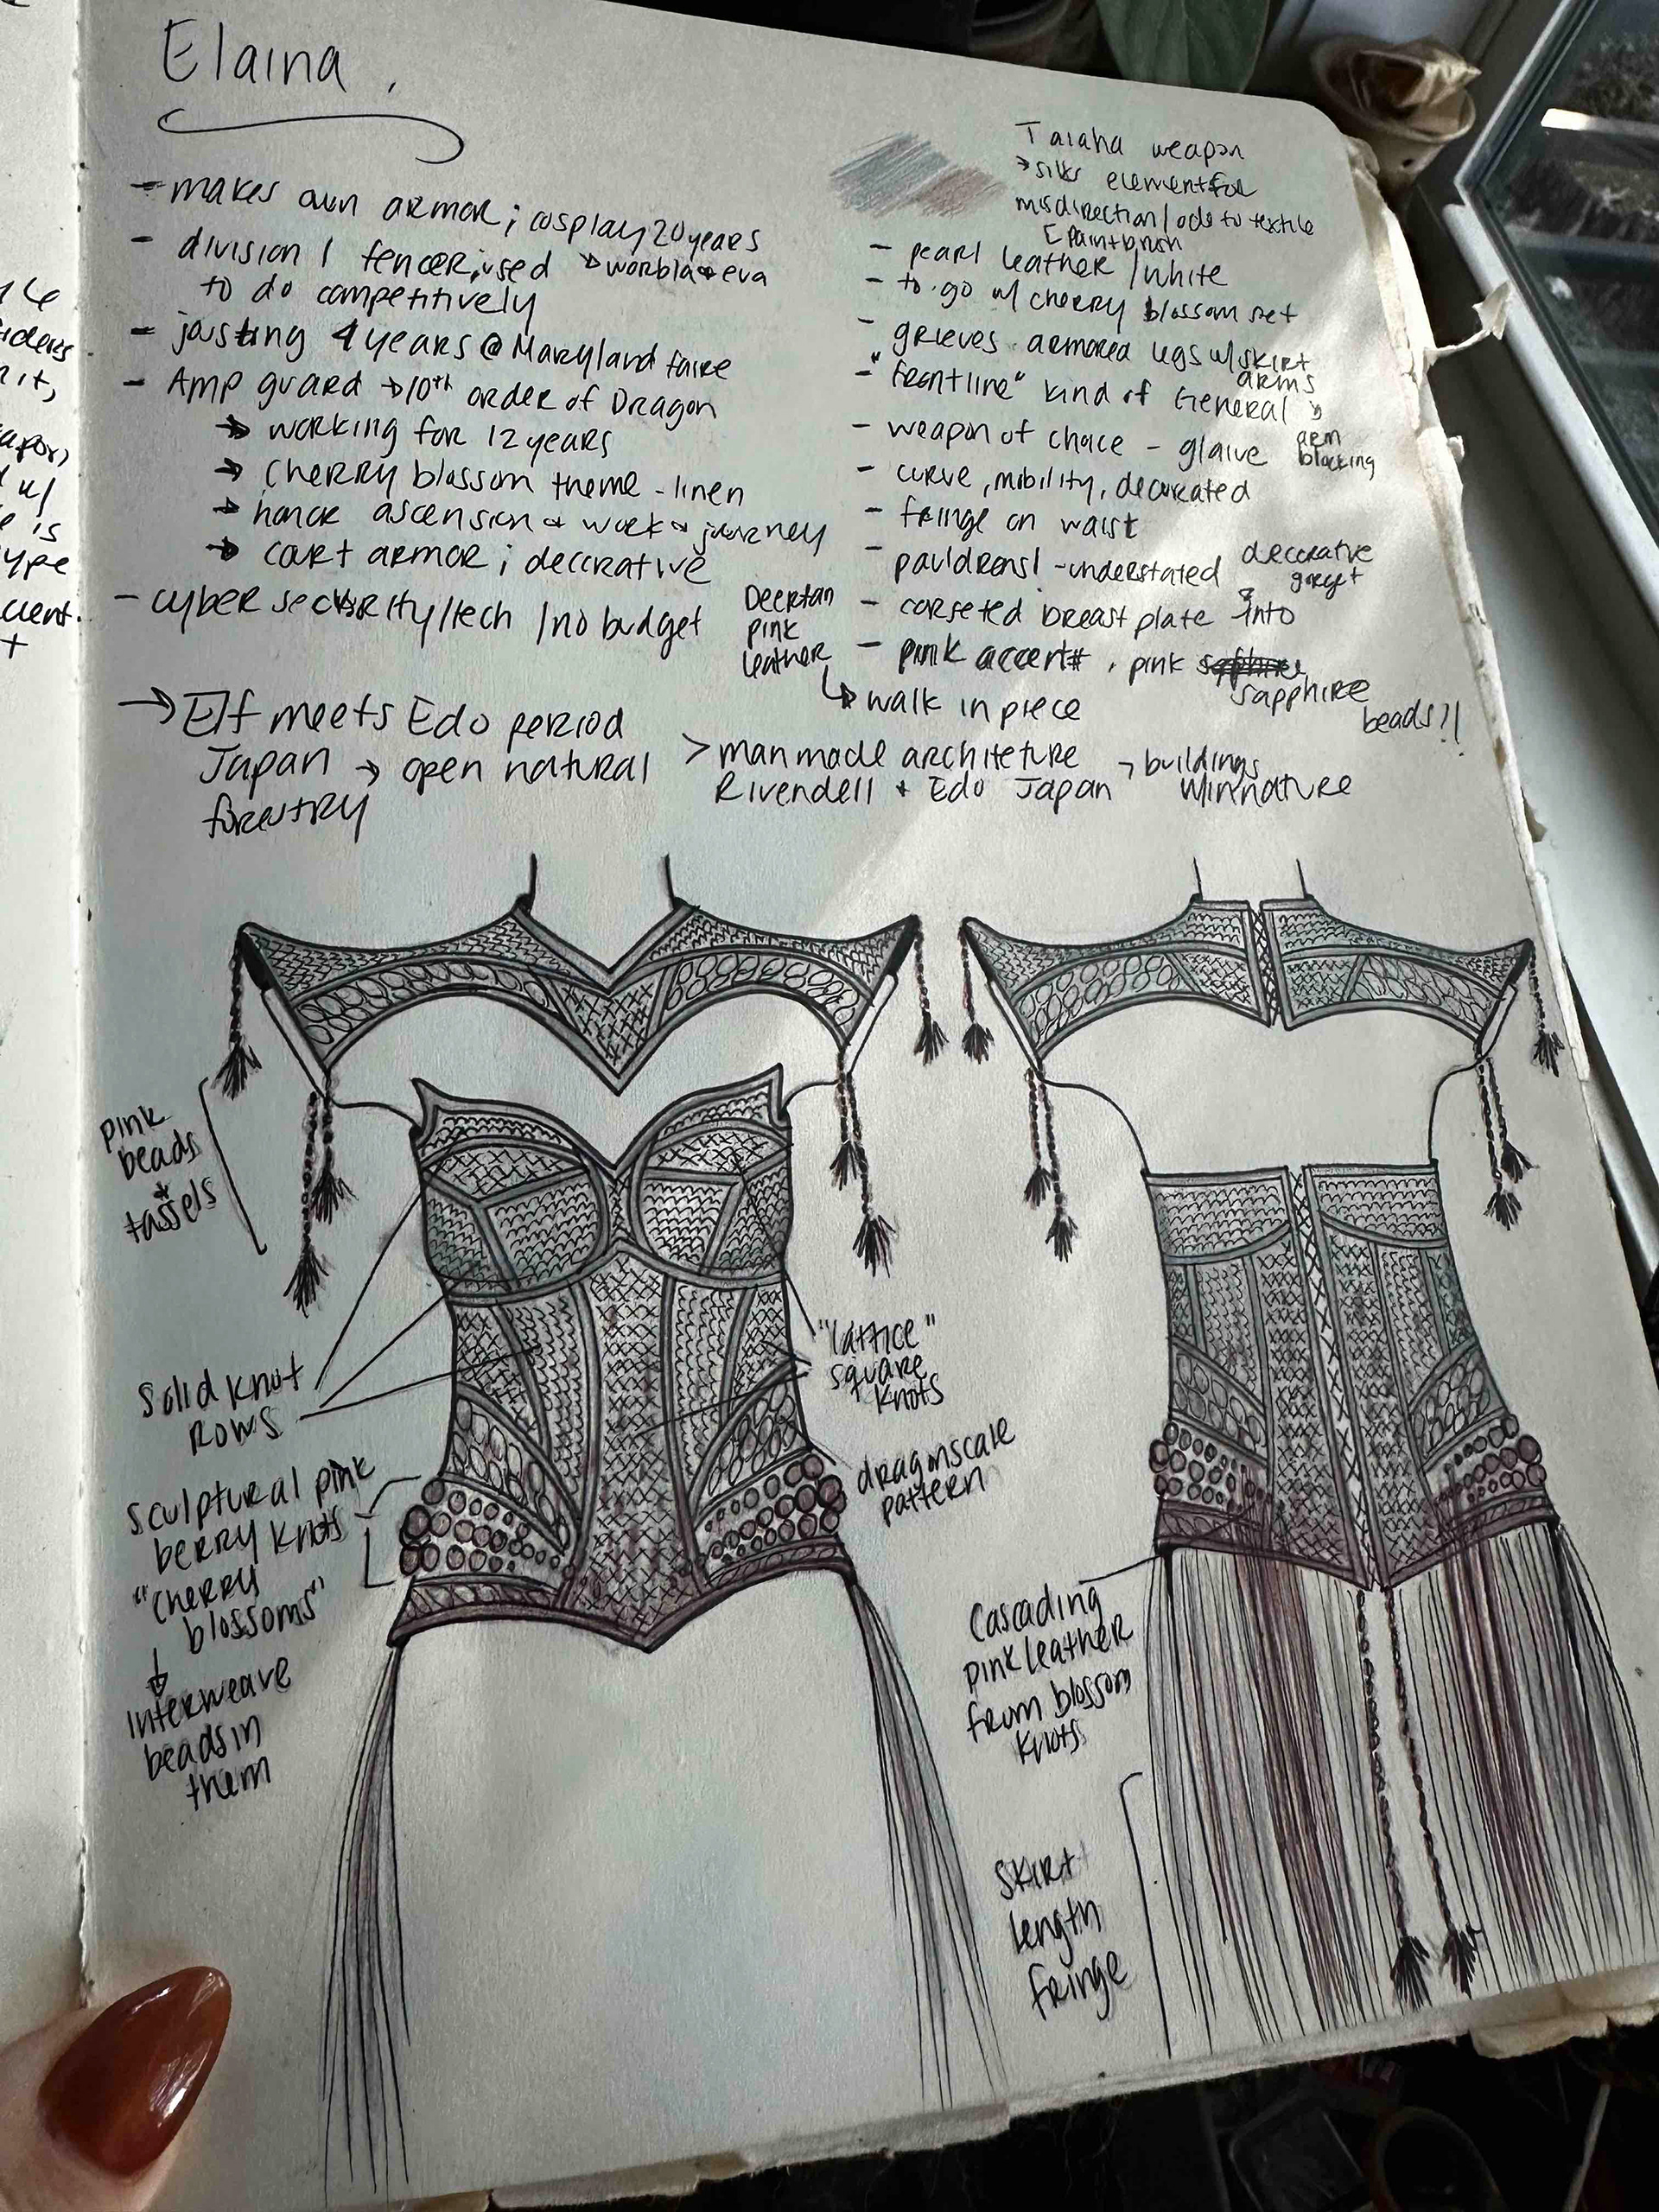 Elaina
- makes own armor ; cosplay 20 years
↳ worbla & eva
- division 1 fencer, used
to do competitively
- jousting 4 years @ Maryland faire
- Amp guard → 10th order of Dragon
→ working for 12 years
→ cherry blossom theme - linen
→ honor ascension & work & journey
→ court armor ; decorative
- cyber security/tech / no budget
→ Elf meets Edo period
Japan → open natural
forestry
> man made architeture
Rivendell + Edo Japan
→ buildings
w/in nature
Taiaha weapon
→ silks element for
misdirection / ode to textile
[ paintbrush
- pearl leather / white
- to go w/ cherry blossom set
- grieves armored legs w/ skirt
arms
- "frontline" kind of General
- weapon of choice - glaive
arm
blocking
- curve, mobility, decorated
- fringe on waist
- pauldrons! - understated
decorative
gorget
- corseted breast plate into
- pink accent , pink
sapphire
beads?!
Deertan
pink
leather
↳ walk in piece
pink
beads
+
tassels
solid knot
rows
"lattice"
square
knots
dragonscale
pattern
sculptural pink
berry knots
"cherry
blossoms"
↓
interweave
beads in
them
Cascading
pink leather
from blossom
knots
skirt
length
fringe
ders
it,
w/
is
ype
+